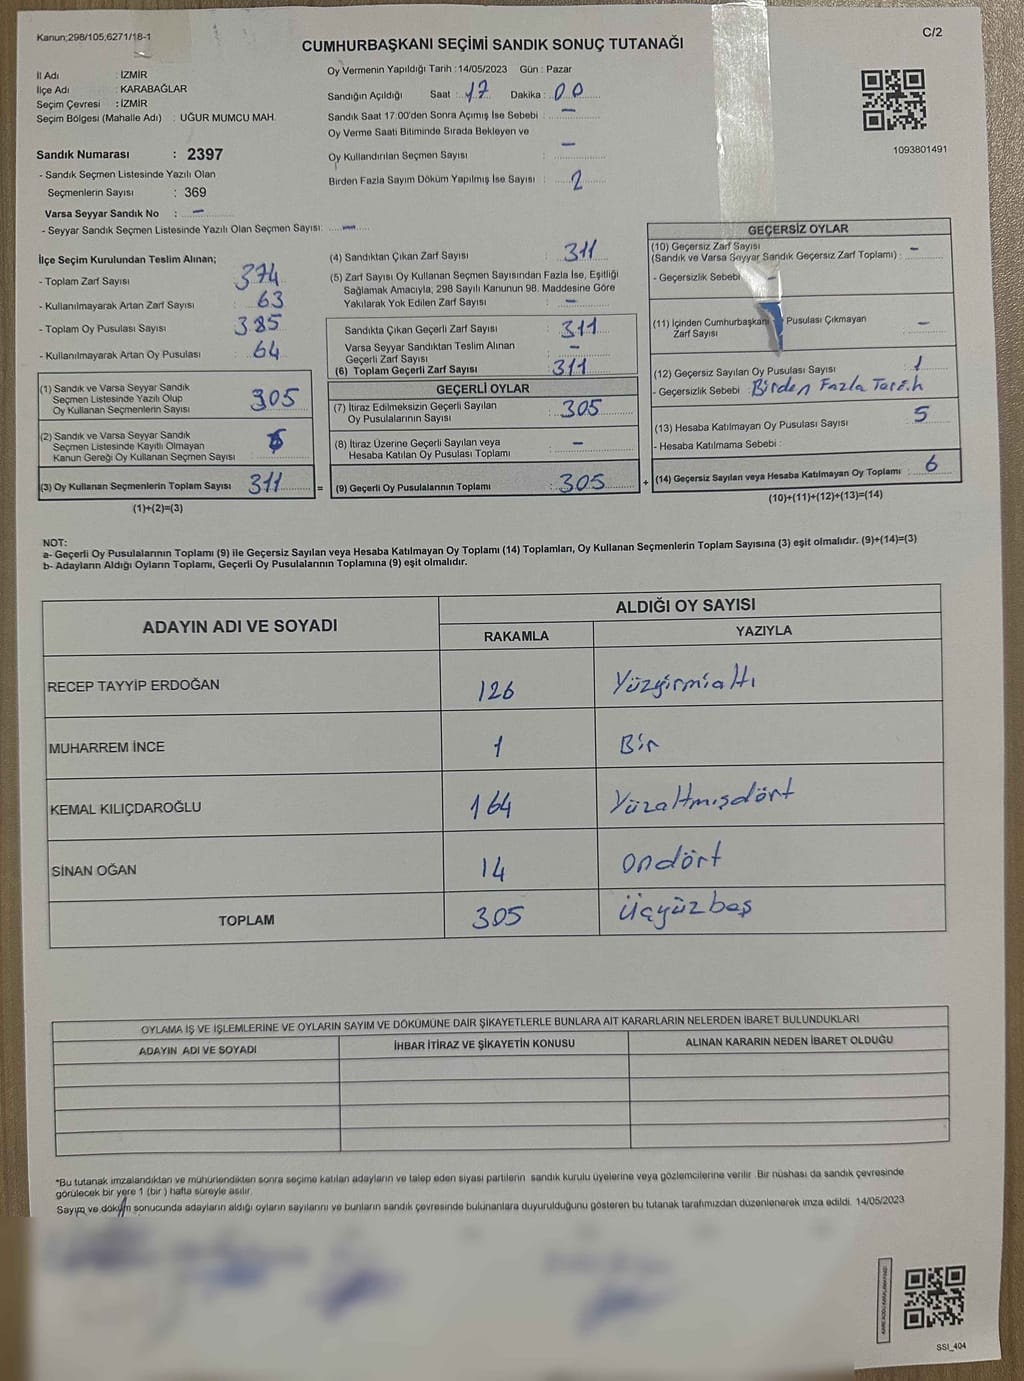 Kanun;298/105,6271/18-1
C/2
CUMHURBAŞKANI SEÇİMİ SANDIK SONUÇ TUTANAĞI
İl Adı : İZMİR
İlçe Adı : KARABAĞLAR
Seçim Çevresi : İZMİR
Seçim Bölgesi (Mahalle Adı) : UĞUR MUMCU MAH.
Sandık Numarası : 2397
- Sandık Seçmen Listesinde Yazılı Olan
Seçmenlerin Sayısı : 369
Varsa Seyyar Sandık No : -
- Seyyar Sandık Seçmen Listesinde Yazılı Olan Seçmen Sayısı: -
Oy Vermenin Yapıldığı Tarih : 14/05/2023 Gün : Pazar
Sandığın Açıldığı Saat : 17 Dakika : 00
Sandık Saat 17.00'den Sonra Açımış İse Sebebi : -
Oy Verme Saati Bitiminde Sırada Bekleyen ve
Oy Kullandırılan Seçmen Sayısı : -
Birden Fazla Sayım Döküm Yapılmış İse Sayısı : 2
1093801491
İlçe Seçim Kurulundan Teslim Alınan;
- Toplam Zarf Sayısı : 374
- Kullanılmayarak Artan Zarf Sayısı : 63
- Toplam Oy Pusulası Sayısı : 385
- Kullanılmayarak Artan Oy Pusulası : 64
(1) Sandık ve Varsa Seyyar Sandık
Seçmen Listesinde Yazılı Olup
Oy Kullanan Seçmenlerin Sayısı : 305
(2) Sandık ve Varsa Seyyar Sandık
Seçmen Listesinde Kayıtlı Olmayan
Kanun Gereği Oy Kullanan Seçmen Sayısı :
(3) Oy Kullanan Seçmenlerin Toplam Sayısı : 311
(1)+(2)=(3)
=
(4) Sandıktan Çıkan Zarf Sayısı : 311
(5) Zarf Sayısı Oy Kullanan Seçmen Sayısından Fazla İse, Eşitliği
Sağlamak Amacıyla; 298 Sayılı Kanunun 98. Maddesine Göre
Yakılarak Yok Edilen Zarf Sayısı : -
Sandıkta Çıkan Geçerli Zarf Sayısı : 311
Varsa Seyyar Sandıktan Teslim Alınan
Geçerli Zarf Sayısı : -
(6) Toplam Geçerli Zarf Sayısı : 311
GEÇERLİ OYLAR
(7) İtiraz Edilmeksizin Geçerli Sayılan
Oy Pusulalarının Sayısı : 305
(8) İtiraz Üzerine Geçerli Sayılan veya
Hesaba Katılan Oy Pusulası Toplamı : -
(9) Geçerli Oy Pusulalarının Toplamı : 305
+
GEÇERSİZ OYLAR
(10) Geçersiz Zarf Sayısı
(Sandık ve Varsa Seyyar Sandık Geçersiz Zarf Toplamı) : -
- Geçersizlik Sebebi : -
(11) İçinden Cumhurbaşkanı Pusulası Çıkmayan
Zarf Sayısı : -
(12) Geçersiz Sayılan Oy Pusulası Sayısı : 1
- Geçersizlik Sebebi : Birden Fazla Tercih
(13) Hesaba Katılmayan Oy Pusulası Sayısı : 5
- Hesaba Katılmama Sebebi :
(14) Geçersiz Sayılan veya Hesaba Katılmayan Oy Toplamı : 6
(10)+(11)+(12)+(13)=(14)
NOT:
a- Geçerli Oy Pusulalarının Toplamı (9) ile Geçersiz Sayılan veya Hesaba Katılmayan Oy Toplamı (14) Toplamları, Oy Kullanan Seçmenlerin Toplam Sayısına (3) eşit olmalıdır. (9)+(14)=(3)
b- Adayların Aldığı Oyların Toplamı, Geçerli Oy Pusulalarının Toplamına (9) eşit olmalıdır.
ADAYIN ADI VE SOYADI ALDIĞI OY SAYISI
RAKAMLA YAZIYLA
RECEP TAYYİP ERDOĞAN 126 Yüzyirmialtı
MUHARREM İNCE 1 Bir
KEMAL KILIÇDAROĞLU 164 Yüzaltmışdört
SİNAN OĞAN 14 Ondört
TOPLAM 305 Üçyüzbeş
OYLAMA İŞ VE İŞLEMLERİNE VE OYLARIN SAYIM VE DÖKÜMÜNE DAİR ŞİKAYETLERLE BUNLARA AİT KARARLARIN NELERDEN İBARET BULUNDUKLARI
ADAYIN ADI VE SOYADI İHBAR İTİRAZ VE ŞİKAYETİN KONUSU ALINAN KARARIN NEDEN İBARET OLDUĞU
*Bu tutanak imzalandıktan ve mühürlendikten sonra seçime katılan adayların ve talep eden siyasi partilerin sandık kurulu üyelerine veya gözlemcilerine verilir. Bir nüshası da sandık çevresinde
görülecek bir yere 1 (bir ) hafta süreyle asılır.
Sayım ve döküm sonucunda adayların aldığı oyların sayılarını ve bunların sandık çevresinde bulunanlara duyurulduğunu gösteren bu tutanak tarafımızdan düzenlenerek imza edildi. 14/05/2023
SSI_404